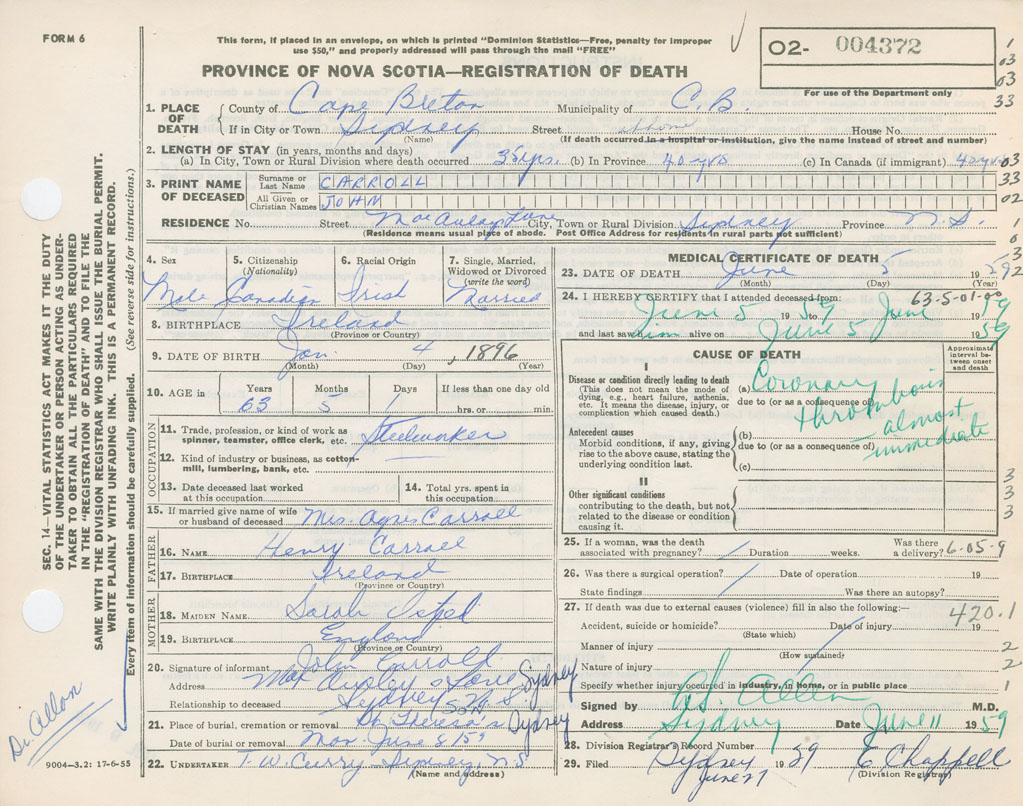 FORM 6
This form, if placed in an envelope, on which is printed "Dominion Statistics—Free, penalty for improper
use $50," and properly addressed will pass through the mail "FREE"
O2- 004372
For use of the Department only
PROVINCE OF NOVA SCOTIA—REGISTRATION OF DEATH
1
03
03
33
1. PLACE OF DEATH { County of Cape Breton Municipality of C.B.
If in City or Town Sydney Street at home House No.
(Name) (If death occurred in a hospital or institution, give the name instead of street and number)
2. LENGTH OF STAY (in years, months and days)
(a) In City, Town or Rural Division where death occurred 35 yrs. (b) In Province 40 yrs (c) In Canada (if immigrant) 40 yrs 03
3. PRINT NAME OF DECEASED { Surname or Last Name CARROLL 33
All Given or Christian Names JOHN 02
RESIDENCE No. Street MacAulay Lane City, Town or Rural Division Sydney Province N.S. 1
(Residence means usual place of abode. Post Office Address for residents in rural parts not sufficient)
4. Sex Male
5. Citizenship (Nationality) Canadian
6. Racial Origin Irish
7. Single, Married, Widowed or Divorced (write the word) Married
8. BIRTHPLACE Ireland
(Province or Country)
9. DATE OF BIRTH Jan. 4, 1896
(Month) (Day) (Year)
10. AGE in Years 63 Months 5 Days 1 If less than one day old hrs. or min.
OCCUPATION
11. Trade, profession, or kind of work as spinner, teamster, office clerk, etc. Steelworker
12. Kind of industry or business, as cotton-mill, lumbering, bank, etc.
13. Date deceased last worked at this occupation
14. Total yrs. spent in this occupation
15. If married give name of wife or husband of deceased Mrs. Agnes Carroll
FATHER
16. NAME Henry Carroll
17. BIRTHPLACE Ireland
(Province or Country)
MOTHER
18. MAIDEN NAME Sarah
19. BIRTHPLACE England
(Province or Country)
20. Signature of informant John Carroll
Address Lane Sydney
Relationship to deceased Sydney N.S. Son
21. Place of burial, cremation or removal St. Theresa's Sydney
Date of burial or removal Mon. June 8 159
22. UNDERTAKER T. W. Curry Sydney, N.S
(Name and address)
MEDICAL CERTIFICATE OF DEATH
23. DATE OF DEATH June 5 1959
(Month) (Day) (Year)
24. I HEREBY CERTIFY that I attended deceased from: 63-5-01-00
June 5 1959 June 1959
and last saw him alive on June 5 1959
CAUSE OF DEATH
Approximate interval between onset and death
I
Disease or condition directly leading to death
(This does not mean the mode of dying, e.g., heart failure, asthenia, etc. It means the disease, injury, or complication which caused death.)
(a) Coronary
due to (or as a consequence of) thrombosis
Antecedent causes
Morbid conditions, if any, giving rise to the above cause, stating the underlying condition last.
(b) — almost
due to (or as a consequence of) immediate
(c)
II
Other significant conditions
contributing to the death, but not related to the disease or condition causing it.
3
3
3
25. If a woman, was the death associated with pregnancy? Duration weeks. Was there a delivery? 6-05-9
26. Was there a surgical operation? Date of operation 19
State findings Was there an autopsy?
27. If death was due to external causes (violence) fill in also the following:— 420.1
Accident, suicide or homicide? Date of injury 19
(State which)
Manner of injury 2
(How sustained)
Nature of injury 2
Specify whether injury occurred in industry, in home, or in public place 1
Signed by A. J. Allen M.D.
Address Sydney Date June 11 1959
28. Division Registrar's Record Number
29. Filed Sydney June 27 1959 E Chappell
(Division Registrar)
SEC. 14—VITAL STATISTICS ACT MAKES IT THE DUTY
OF THE UNDERTAKER OR PERSON ACTING AS UNDER-
TAKER TO OBTAIN ALL THE PARTICULARS REQUIRED
IN THE "REGISTRATION OF DEATH" AND TO FILE THE
SAME WITH THE DIVISION REGISTRAR WHO SHALL ISSUE THE BURIAL PERMIT.
WRITE PLAINLY WITH UNFADING INK. THIS IS A PERMANENT RECORD.
Every item of information should be carefully supplied. (See reverse side for instructions.)
Dr. Allan
9004—3.2: 17-6-55